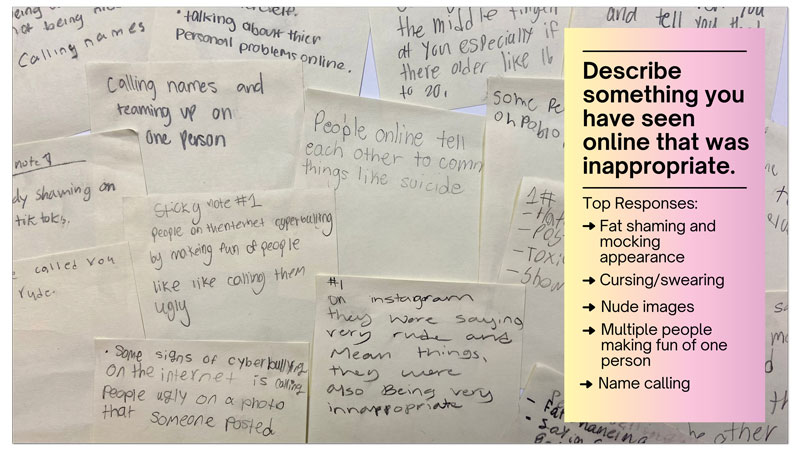 not being
Calling names
• talking about thier
Personal problems online.
the middle finger
at you especially if
there older like 16
to 20.
and tell you
Calling names and
teaming up on
one person
People online tell
each other to comm
things like suicide
some pe
on
note 7
dy shaming on
tik toks.
sticky note #1
people on the internet cyberbulling
by makeing fun of people
like like calling them
ugly
1#
-
-
- Toxi
- Show
e called you
rude.
#1
on instagram
they were saying
very rude and
Mean things,
they were
also Being very
innappropriate
• Some signs of cyberbullying
on the internet is calling
People ugly on a photo
that someone posted
other
Describe
something you
have seen
online that was
inappropriate.
Top Responses:
→ Fat shaming and
mocking
appearance
→ Cursing/swearing
→ Nude images
→ Multiple people
making fun of one
person
→ Name calling